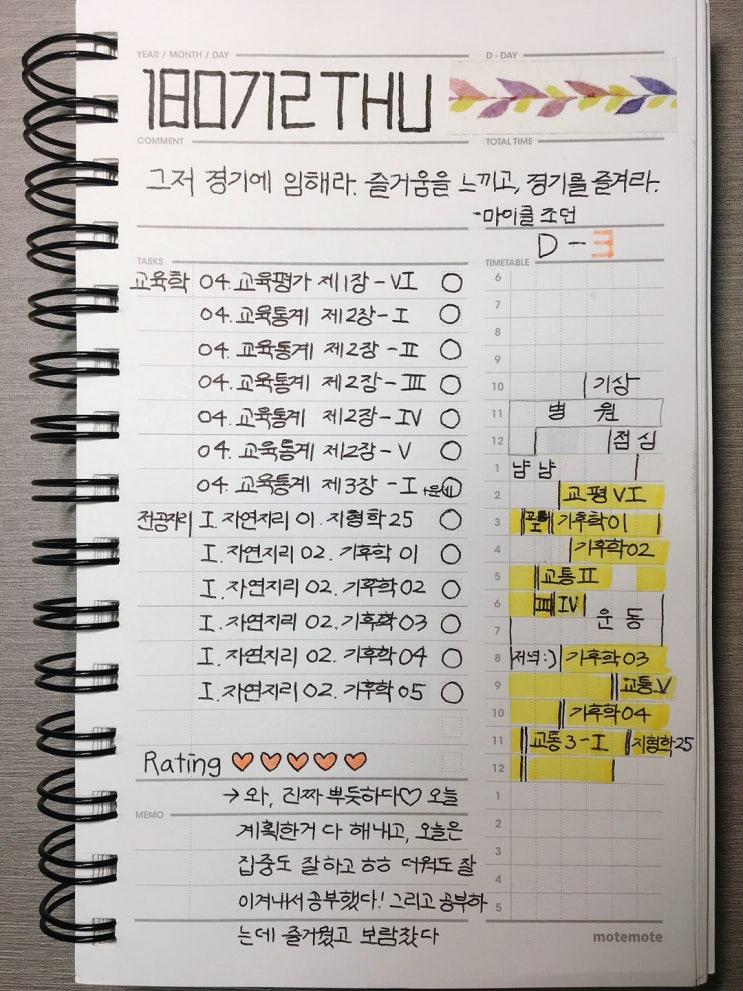 YEAR / MONTH / DAY
D - DAY
180712 THU
COMMENT
TOTAL TIME
그저 경기에 임해라. 즐거움을 느끼고, 경기를 즐겨라.
-마이클 조던
D-3
TASKS
교육학 04. 교육평가 제1장-VI
04. 교육통계 제2장-I
04. 교육통계 제2장-II
04. 교육통계 제2장-III
04. 교육통계 제2장-IV
04. 교육통계 제2장-V
04. 교육통계 제3장-I
전공자리 I. 자연지리 01. 지형학 25
I. 자연지리 02. 기후학 01
I. 자연지리 02. 기후학 02
I. 자연지리 02. 기후학 03
I. 자연지리 02. 기후학 04
I. 자연지리 02. 기후학 05
Rating
→ 와, 진짜 뿌듯하다♡ 오늘
MEMO
계획한거 다 해내고, 오늘은
집중도 잘하고 ㅎㅎ 더워도 잘
이겨내서 공부했다! 그리고 공부하
는데 즐거웠고 보람찼다
TIMETABLE
6
7
8
9
10 기상
11 병원
12 점심
1 냠냠
2 교평 VI
3 교통 I 기후학01
4 기후학02
5 교통 II
6 III IV 운동
7
8 저녁:) 기후학03
9 교통 V
10 기후학04
11 교통3-I 지형학25
12
1
2
3
4
5
motemote